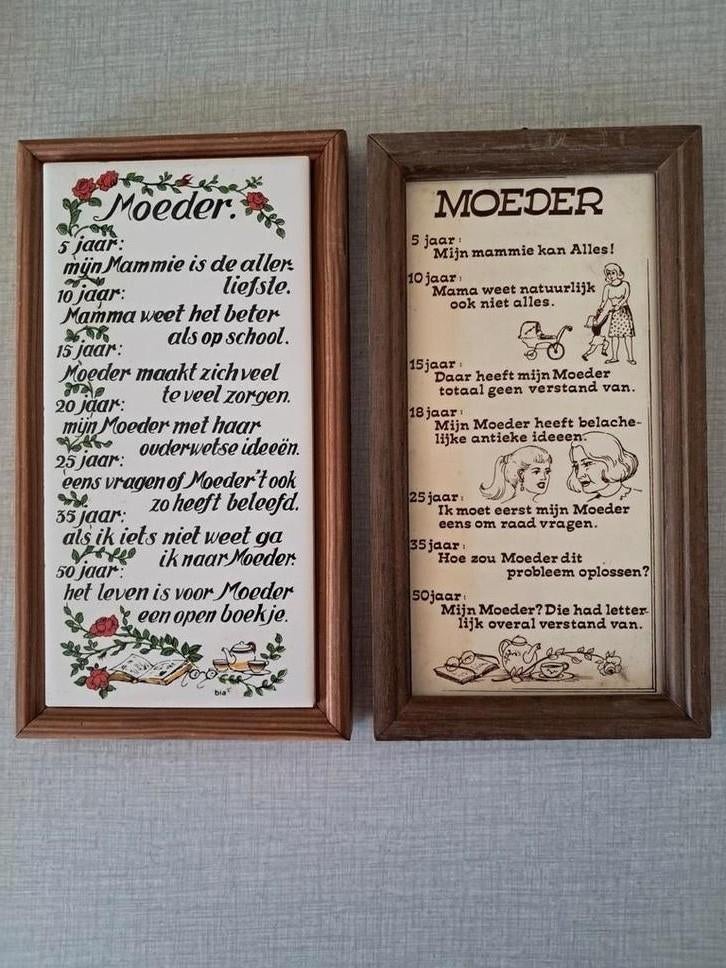 Moeder.
5 jaar:
mijn Mammie is de aller-
liefste.
10 jaar:
Mamma weet het beter
als op school.
15 jaar:
Moeder maakt zich veel
te veel zorgen.
20 jaar:
mijn Moeder met haar
ouderwetse ideeën.
25 jaar:
eens vragen of Moeder 't ook
zo heeft beleefd.
35 jaar:
als ik iets niet weet ga
ik naar Moeder.
50 jaar:
het leven is voor Moeder
een open boekje.
bia
MOEDER
5 jaar:
Mijn mammie kan Alles!
10 jaar:
Mama weet natuurlijk
ook niet alles.
15 jaar:
Daar heeft mijn Moeder
totaal geen verstand van.
18 jaar:
Mijn Moeder heeft belache-
lijke antieke ideeen.
25 jaar:
Ik moet eerst mijn Moeder
eens om raad vragen.
35 jaar:
Hoe zou Moeder dit
probleem oplossen?
50 jaar:
Mijn Moeder? Die had letter-
lijk overal verstand van.